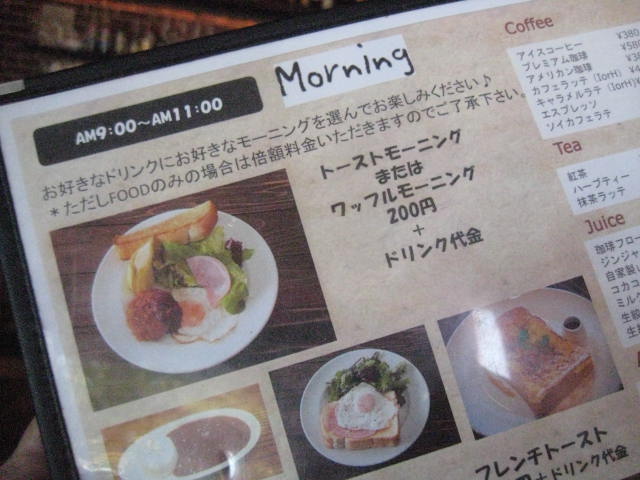 Morning
AM9:00～AM11:00
お好きなドリンクにお好きなモーニングを選んでお楽しみください♪
＊ただしFOODのみの場合は倍額料金いただきますのでご了承下さい。
トーストモーニング
または
ワッフルモーニング
200円
+
ドリンク代金
フレンチトースト
円+ドリンク代金
Coffee
アイスコーヒー ¥380
プレミアム珈琲
アメリカン珈琲
カフェラッテ (IorH)
キャラメルラテ (IorH)
エスプレッソ
ソイカフェラテ
Tea
紅茶
ハーブティー
抹茶ラッテ
Juice
珈琲フロー
ジンジャ
自家製
コカコ
ミル
生
生